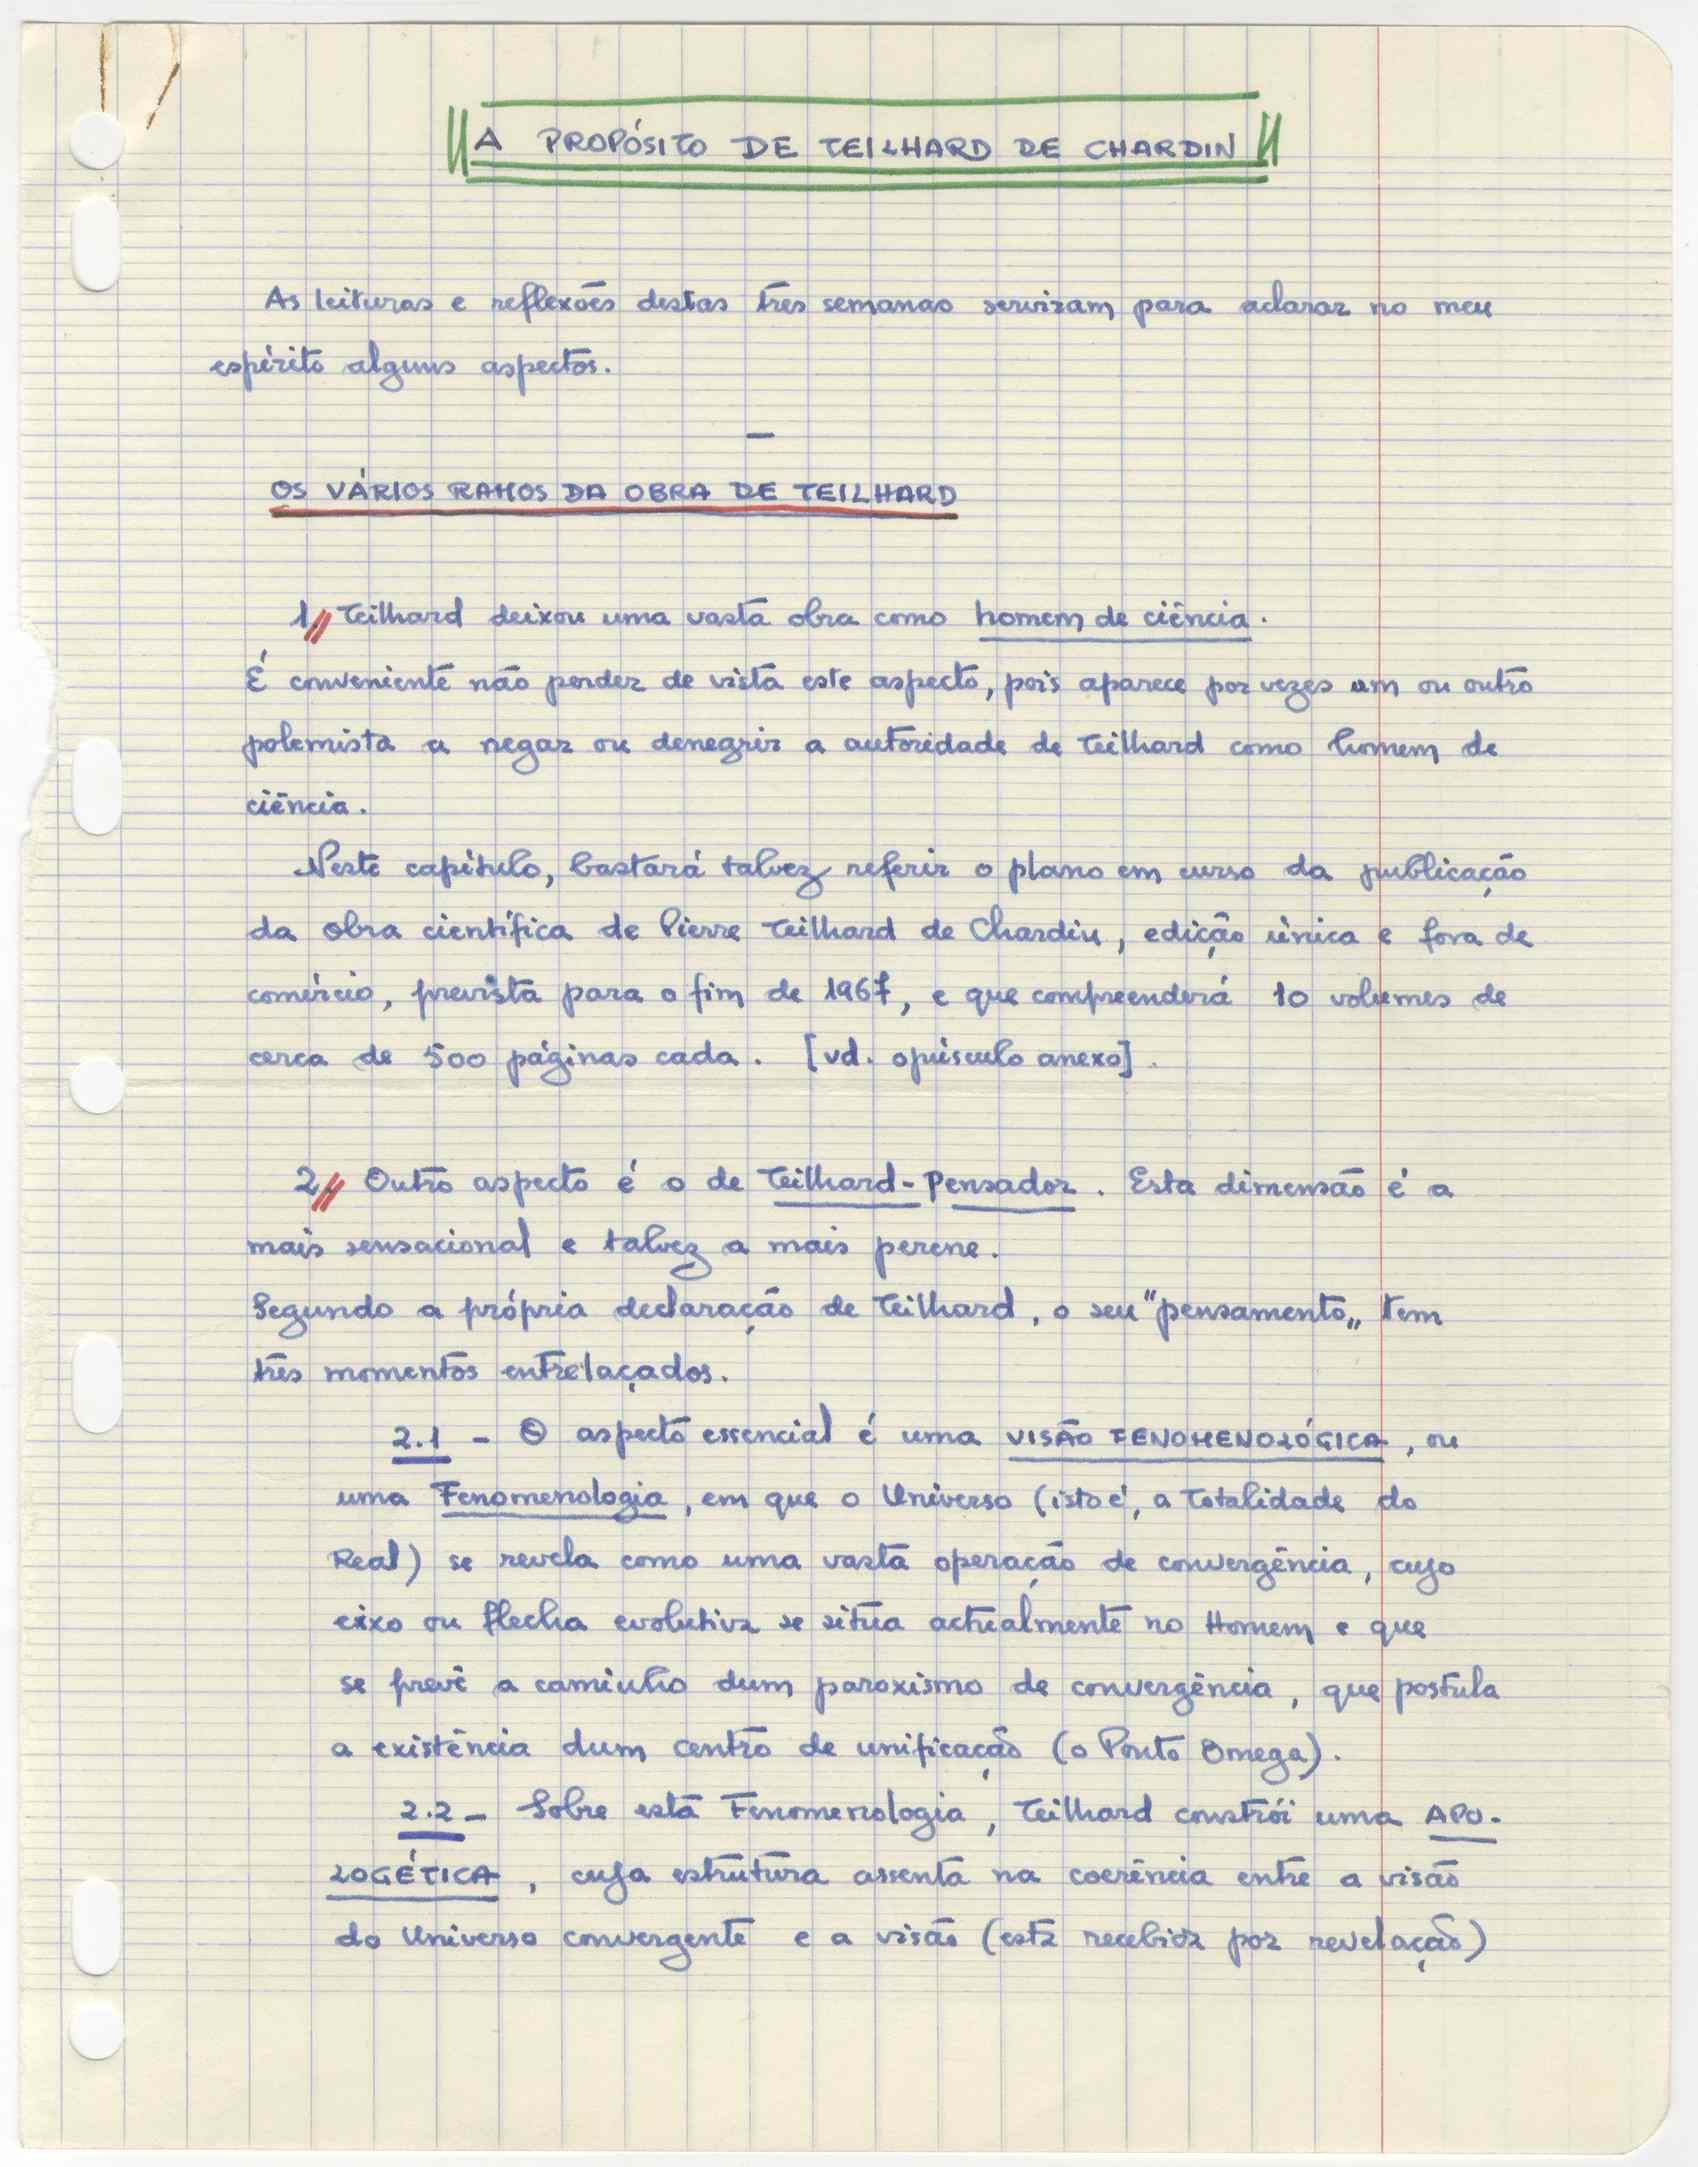 A PROPÓSITO DE TEILHARD DE CHARDIN
As leituras e reflexões destas três semanas serviram para aclarar no meu
espírito alguns aspectos.
—
OS VÁRIOS RAMOS DA OBRA DE TEILHARD
1. Teilhard deixou uma vasta obra como homem de ciência.
É conveniente não perder de vista este aspecto, pois aparece por vezes um ou outro
polemista a negar ou denegrir a autoridade de Teilhard como homem de
ciência.
Neste capítulo, bastará talvez referir o plano em curso da publicação
da obra científica de Pierre Teilhard de Chardin, edição única e fora de
comércio, prevista para o fim de 1967, e que compreenderá 10 volumes de
cerca de 500 páginas cada. [vd. opúsculo anexo].
2. Outro aspecto é o de Teilhard-Pensador. Esta dimensão é a
mais sensacional e talvez a mais perene.
Segundo a própria declaração de Teilhard, o seu "pensamento„ tem
três momentos entrelaçados.
2.1 - O aspecto essencial é uma VISÃO FENOMENOLÓGICA, ou
uma Fenomenologia, em que o Universo (isto é, a Totalidade do
Real) se revela como uma vasta operação de convergência, cujo
eixo ou flecha evolutiva se situa actualmente no Homem e que
se prevê a caminho dum paroxismo de convergência, que postula
a existência dum centro de unificação (o Ponto Omega).
2.2 - Sobre esta Fenomenologia, Teilhard constrói uma APO-
LOGÉTICA, cuja estrutura assenta na coerência entre a visão
do Universo convergente e a visão (esta recebida por revelação)